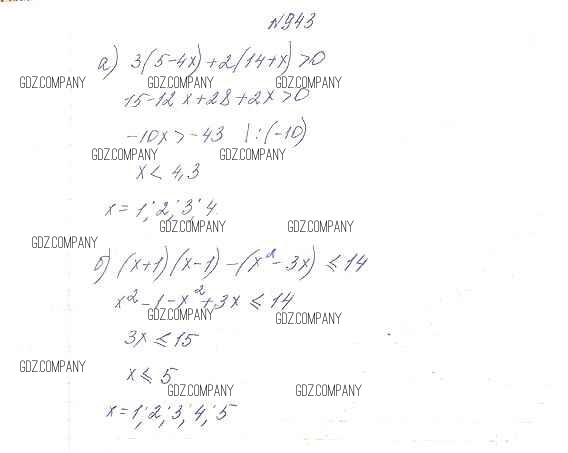 №943
а) 3(5-4x)+2(14+x)>0
GDZ.COMPANY GDZ.COMPANY GDZ.COMPANY
15-12x+28+2x>0
-10x>-43 |:(-10)
GDZ.COMPANY GDZ.COMPANY
x<4,3
x=1; 2; 3; 4.
GDZ.COMPANY GDZ.COMPANY
GDZ.COMPANY
б) (x+1)(x-1)-(x²-3x)≤14
x²-1-x²+3x≤14
GDZ.COMPANY GDZ.COMPANY
3x≤15
GDZ.COMPANY
x≤5
GDZ.COMPANY GDZ.COMPANY
x=1; 2; 3; 4; 5